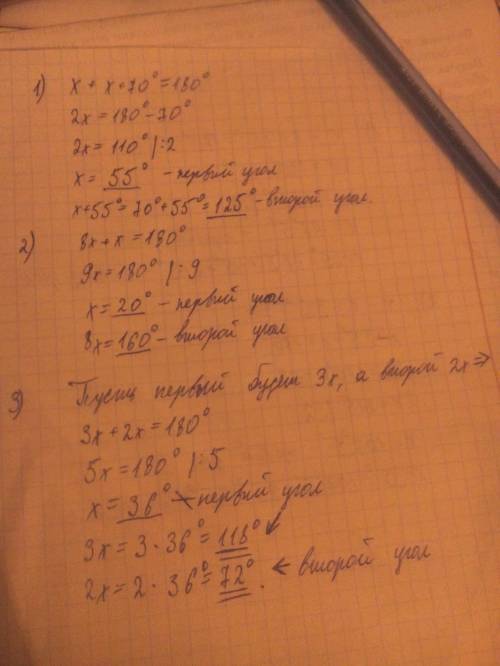 1) x + x + 70° = 180°
2x = 180° - 70°
2x = 110° |:2
x = 55° - первый угол
x+55° = 70° + 55° = 125° - второй угол.
2) 8x + x = 180°
9x = 180° |:9
x = 20° - первый угол
8x = 160° - второй угол
3) Пусть первый будет 3x, а второй 2x ⇒
3x + 2x = 180°
5x = 180° |:5
x = 36° - первый угол
3x = 3 · 36° = 118° ↙
2x = 2 · 36° = 72°. ← второй угол